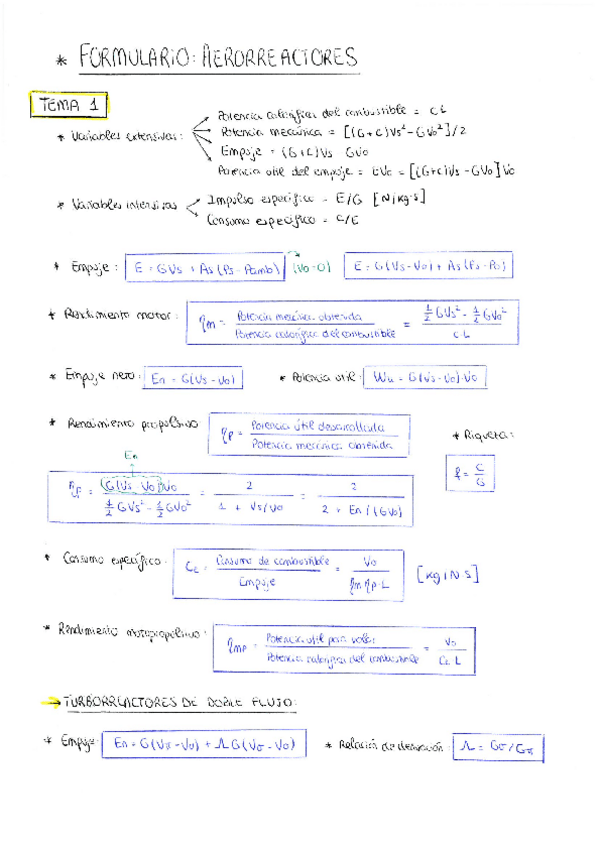 * FORMULARIO: AERORREACTORES
TEMA 1
* Variables extensivas:
Potencia calorífica del combustible = CL
Potencia mecánica = [(G+C)Vs² - GVo²]/2
Empuje = (G+C)Vs GVo
Potencia util del empuje = EVo = [(G+C)Vs - GVo]Vo
* Variables intensivas
Impulso específico = E/G [N/kg·s]
Consumo específico = C/E
* Empuje: E = GVs + As(Ps - Pamb) (Vo=0) E = G(Vs-Vo) + As(Ps-Po)
* Rendimiento motor: ηM = Potencia mecánica obtenida / Potencia calorífica del combustible = ½GVs² - ½GVo² / C·L
* Empuje neto: En = G(Vs-Vo) * Potencia util: Wu = G(Vs-Vo)·Vo
* Rendimiento propulsivo ηP = Potencia útil desarrollada / Potencia mecánica obtenida
* Riqueza:
f = C/G
En
ηP = G(Vs-Vo)Vo / ½GVs² - ½GVo² = 2 / 1 + Vs/Vo = 2 / 2 + En/(GVo)
* Consumo específico: CE = Consumo de combustible / Empuje = Vo / ηM ηP·L [kg/N·S]
* Rendimiento motopropulsivo: ηMP = Potencia util para volar / Potencia calorífica del combustible = Vo / CE L
→ TURBORREACTORES DE DOBLE FLUJO:
* Empuje: En = G(Vπ-Vo) + ΛG(Vσ-Vo) * Relación de derivación: Λ = Gσ/Gπ